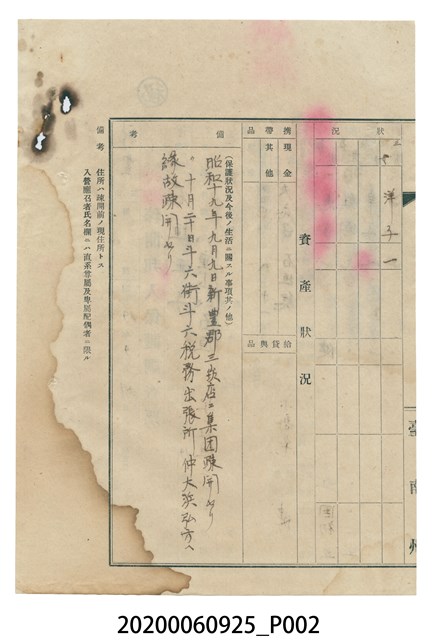 臺南州
狀況
〃 洋子 一
資產狀況
携帶品
現金
其他
給貸與品
備考
(保護狀況及今後ノ生活ニ關スル事項其ノ他)
昭和十九年九月九日新豐郡三崁店ニ集團疎開セリ
〃十月二十日斗六街斗六稅務出張所仲大浜弘方ヘ
緣故疎開セリ
備考
住所ハ疎開前ノ現住所トス
入營應召者氏名欄ニハ直系尊屬及卑屬配偶者ニ限ル
20200060925_P002